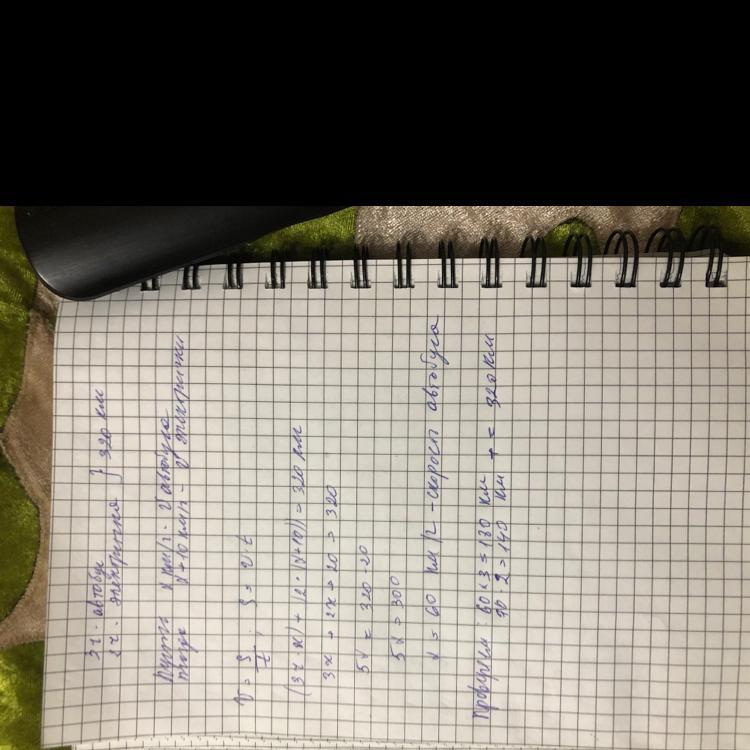 3ч. автобус
2ч. электричка } 320 км
Пусть x км/ч - v автобуса
тогда x+10 км/ч - v электрички
v = S/t, S = v·t
(3ч·x) + (2·(x+10)) = 320 км
3x + 2x + 20 = 320
5x = 320-20
5x = 300
x = 60 км/ч - скорость автобуса
Проверяем: 60×3=180 км
70·2=140 км + = 320 км